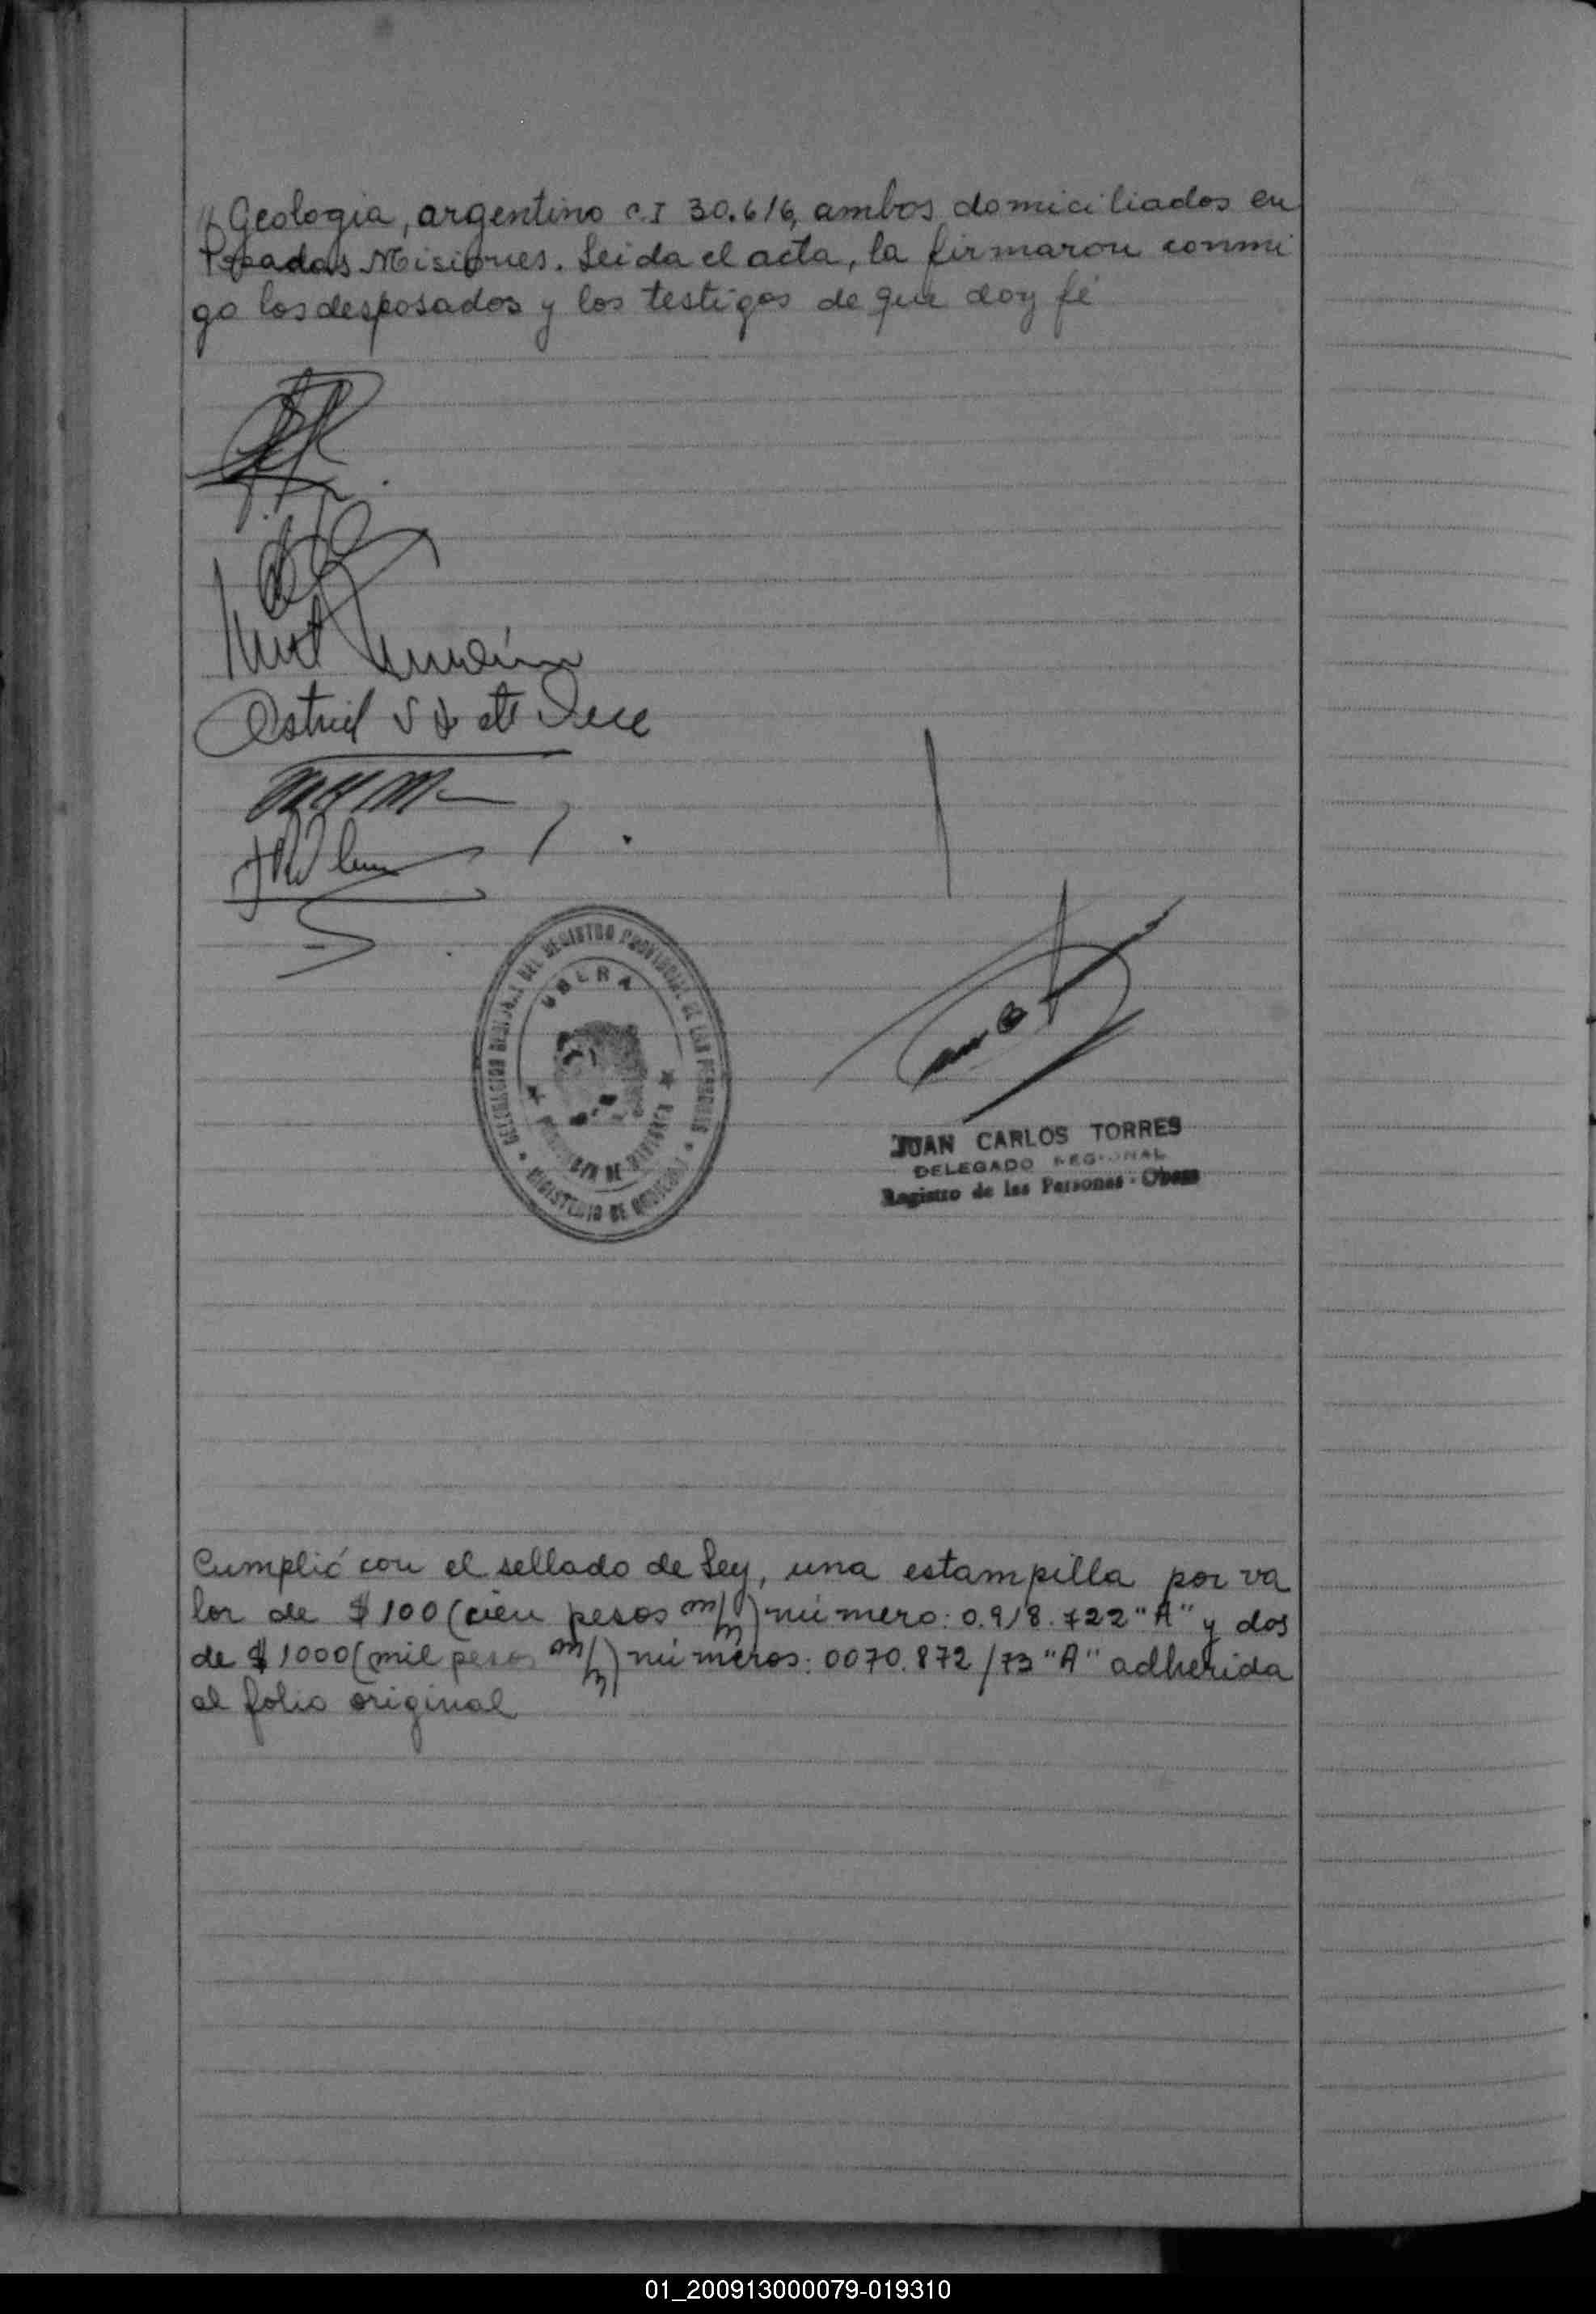 Geologia, argentino C.I 30.616, ambos domiciliados en
Posadas Misiones. Leida el acta, la firmaron conmi
go los desposados y los testigos de que doy fé
Astrid
DELEGACION REGIONAL DEL REGISTRO PROVINCIAL DE LAS PERSONAS
OBERA
MINISTERIO DE GOBIERNO
JUAN CARLOS TORRES
DELEGADO REGIONAL
Registro de las Personas - Obera
Cumplió con el sellado de Ley, una estampilla por va
lor de $ 100 (cien pesos m/n) número: 0.918.722 "A" y dos
de $ 1000 (mil pesos m/n) números: 0070.872/73 "A" adherida
al folio original
01_200913000079-019310